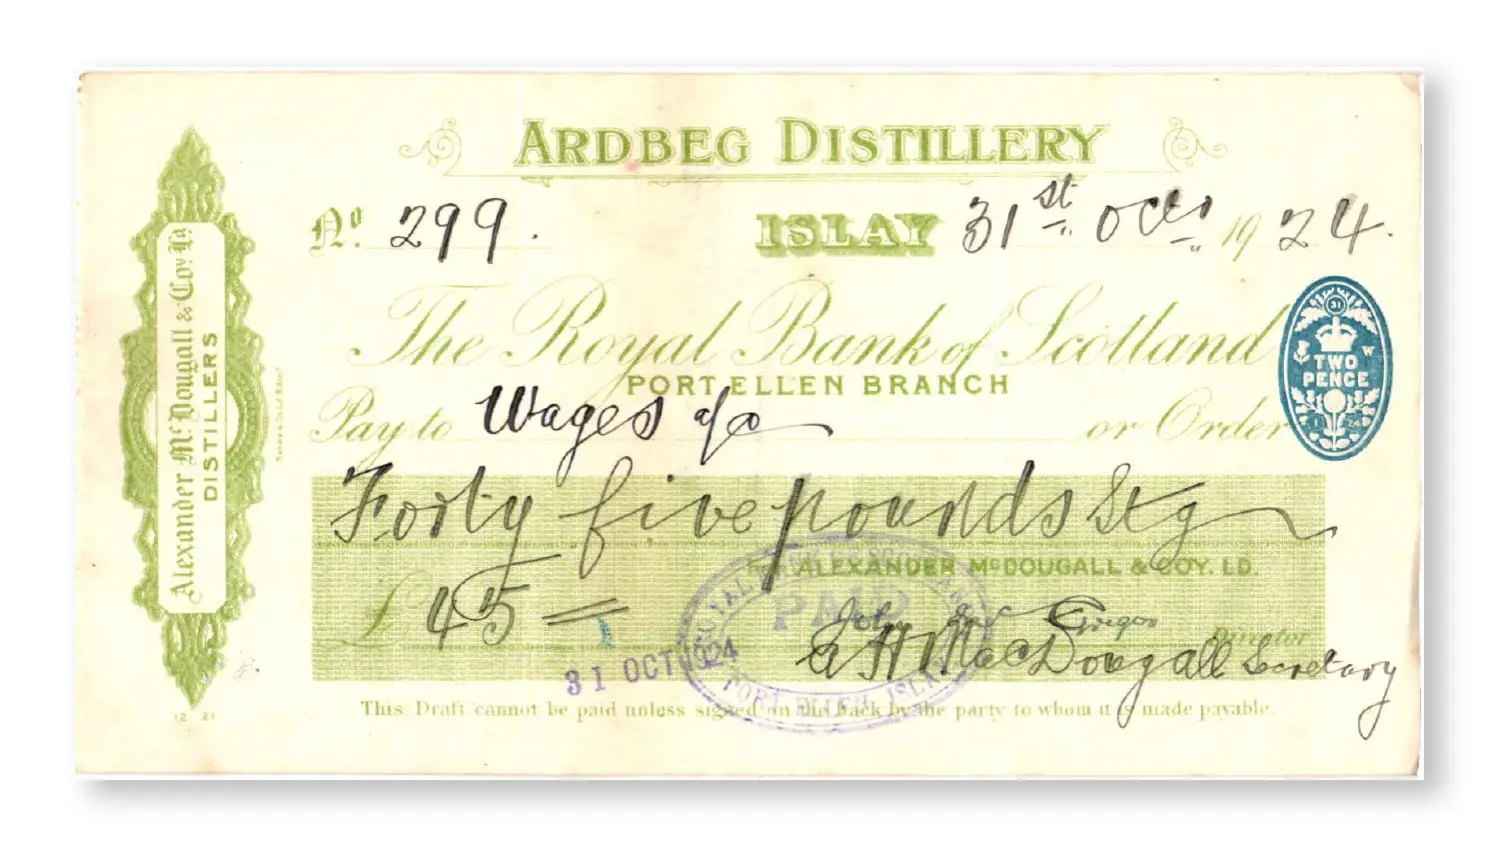 ARDBEG DISTILLERY
No. 299.
ISLAY 31st Octr 1924.
The Royal Bank of Scotland
PORT ELLEN BRANCH
Pay to Wages a/c or Order
TWO PENCE
31
W
Forty five pounds Stg
ALEXANDER McDOUGALL & COY. LD.
£ 45 =
PAID
PORT ELLEN, ISLAY
31 OCT 1924
John Gregor Director
A H MacDougall Secretary
This Draft cannot be paid unless signed on the back by the party to whom it is made payable.
Alexander McDougall & Coy. Ld.
DISTILLERS
12 21